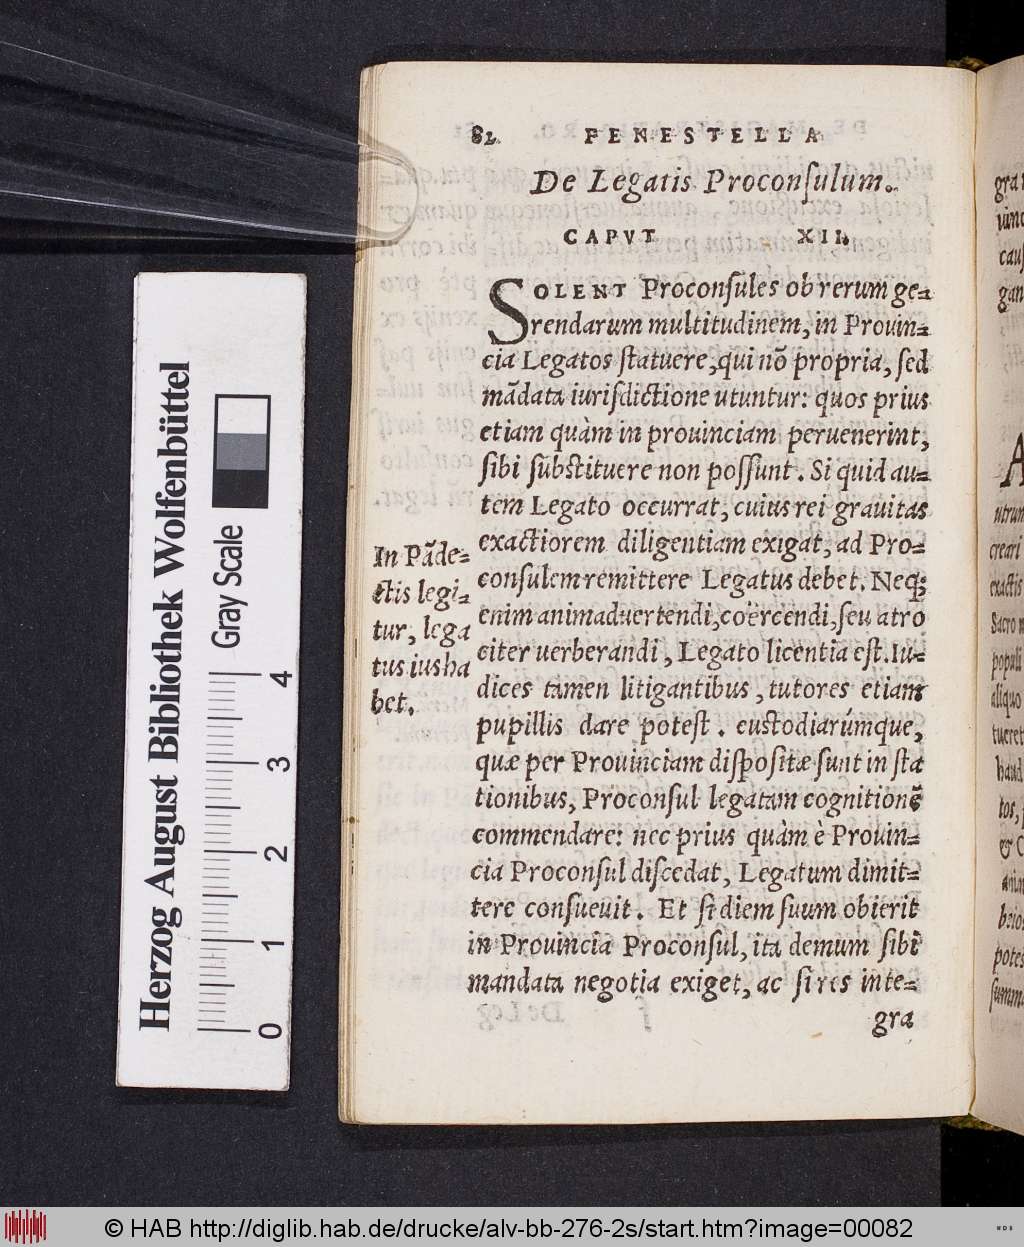 82 FENESTELLA
De Legatis Proconſulum.
CAPVT XII.
SOLENT Proconſules ob rerum ge-
rendarum multitudinem, in Prouin-
cia Legatos ſtatuere, qui nō propria, ſed
mādata iuriſdictione utuntur: quos prius
etiam quàm in prouinciam peruenerint,
ſibi ſubſtituere non poſſunt. Si quid au-
tem Legato occurrat, cuius rei grauitas
exactiorem diligentiam exigat, ad Pro-
conſulem remittere Legatus debet. Neq;
enim animaduertendi, coërcendi, ſeu atro
citer uerberandi, Legato licentia eſt. Iu-
dices tamen litigantibus, tutores etiam
pupillis dare poteſt. cuſtodiarúmque,
quæ per Prouinciam diſpoſitæ ſunt in ſta
tionibus, Proconſul legatam cognitionē
commendare: nec prius quàm è Prouin-
cia Proconſul diſcedat, Legatum dimit-
tere conſueuit. Et ſi diem ſuum obierit
in Prouincia Proconſul, ita demum ſibi
mandata negotia exiget, ac ſi res inte-
gra
In Pāde-
ctis legi-
tur, lega
tus ius ha
bet.
gra
uinc
cauſ
gan
A
utrum
creari
exactis
Sacro
populi
aliquo
tueret
haud
tos,
& C
potes
ſumm
Herzog August Bibliothek Wolfenbüttel
Gray Scale
0 1 2 3 4
© HAB http://diglib.hab.de/drucke/alv-bb-276-2s/start.htm?image=00082
WDB